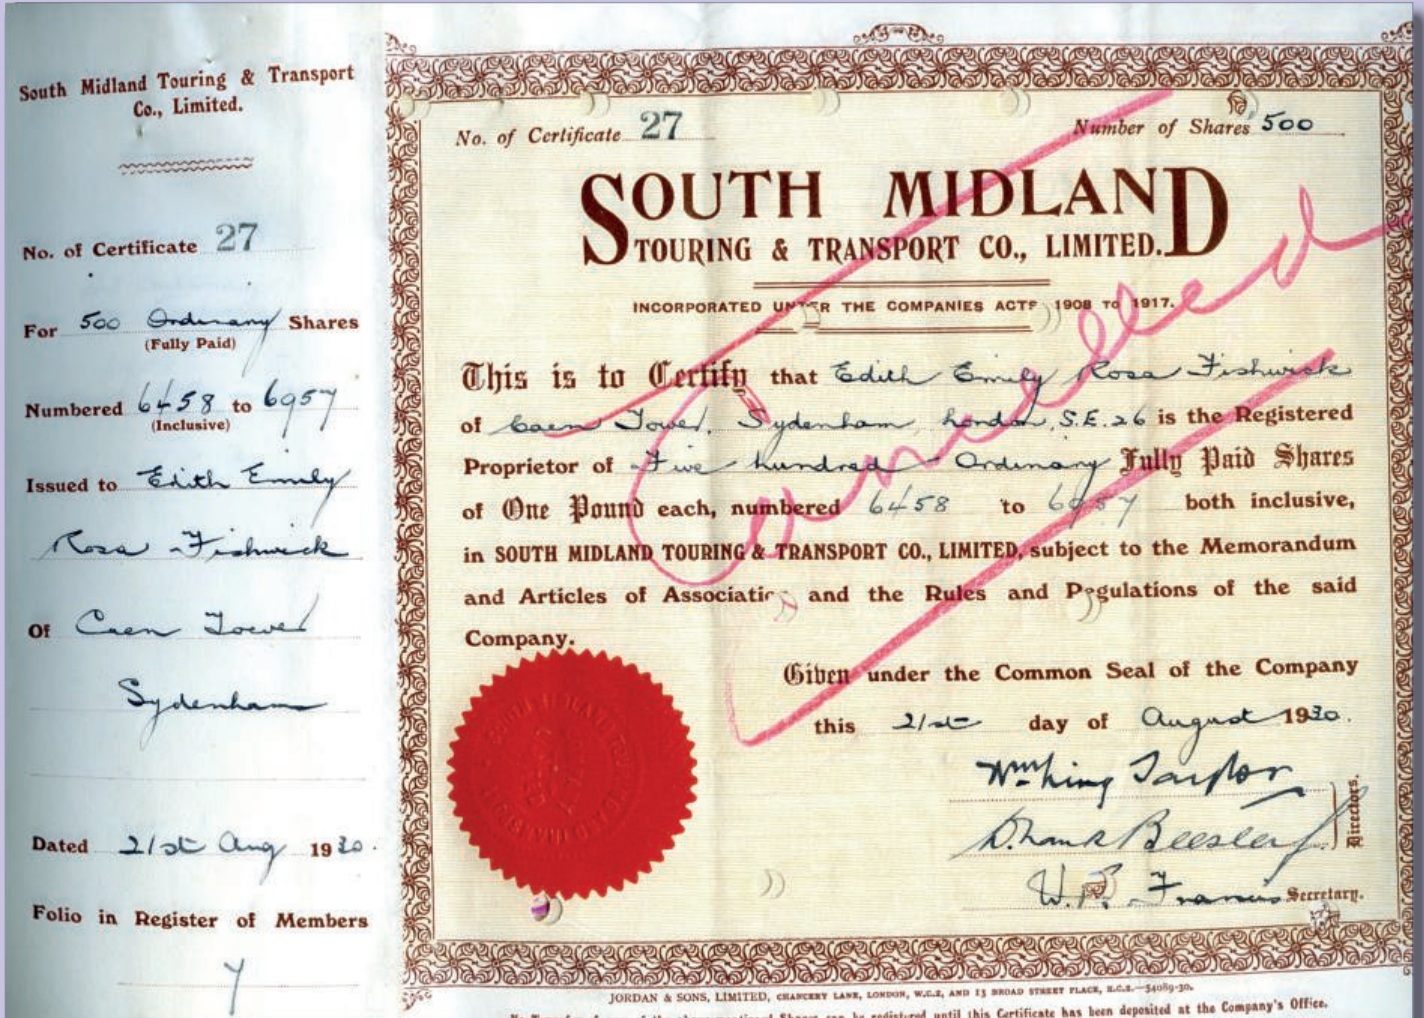 South Midland Touring & Transport
Co., Limited.
No. of Certificate 27
For 500 Ordinary Shares
(Fully Paid)
Numbered 6458 to 6957
(Inclusive)
Issued to Edith Emily
Rosa Fishwick
Of Caen Tower
Sydenham
Dated 21st Aug 1930.
Folio in Register of Members
7
No. of Certificate 27
Number of Shares 500
SOUTH MIDLAND
TOURING & TRANSPORT CO., LIMITED.
INCORPORATED UNDER THE COMPANIES ACTS 1908 TO 1917.
This is to Certify that Edith Emily Rosa Fishwick
of Caen Tower, Sydenham, London, S.E.26 is the Registered
Proprietor of Five hundred Ordinary Fully Paid Shares
of One Pound each, numbered 6458 to 6957 both inclusive,
in SOUTH MIDLAND TOURING & TRANSPORT CO., LIMITED, subject to the Memorandum
and Articles of Association and the Rules and Regulations of the said
Company.
Cancelled
Given under the Common Seal of the Company
this 21st day of August 1930.
Wm King Taylor
Beesley
Directors.
W. P. Francis Secretary.
JORDAN & SONS, LIMITED, CHANCERY LANE, LONDON, W.C.2, AND 13 BROAD STREET PLACE, E.C.2.—54089-30.
Shares can be registered until this Certificate has been deposited at the Company's Office.